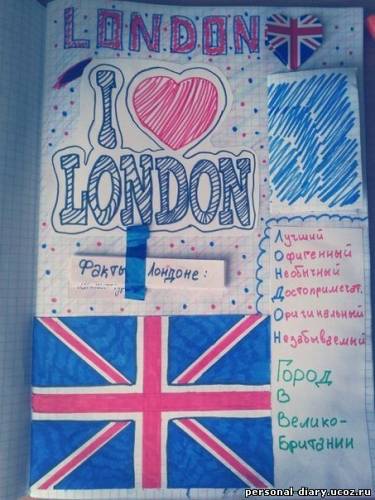 LONDON
I
LONDON
Факты Лондоне:
Лучший
Офигенный
Необычный
Достопримечат.
Оригинальный
Незабываемый
Город
в
Велико-
Британии
personal-diary.ucoz.ru